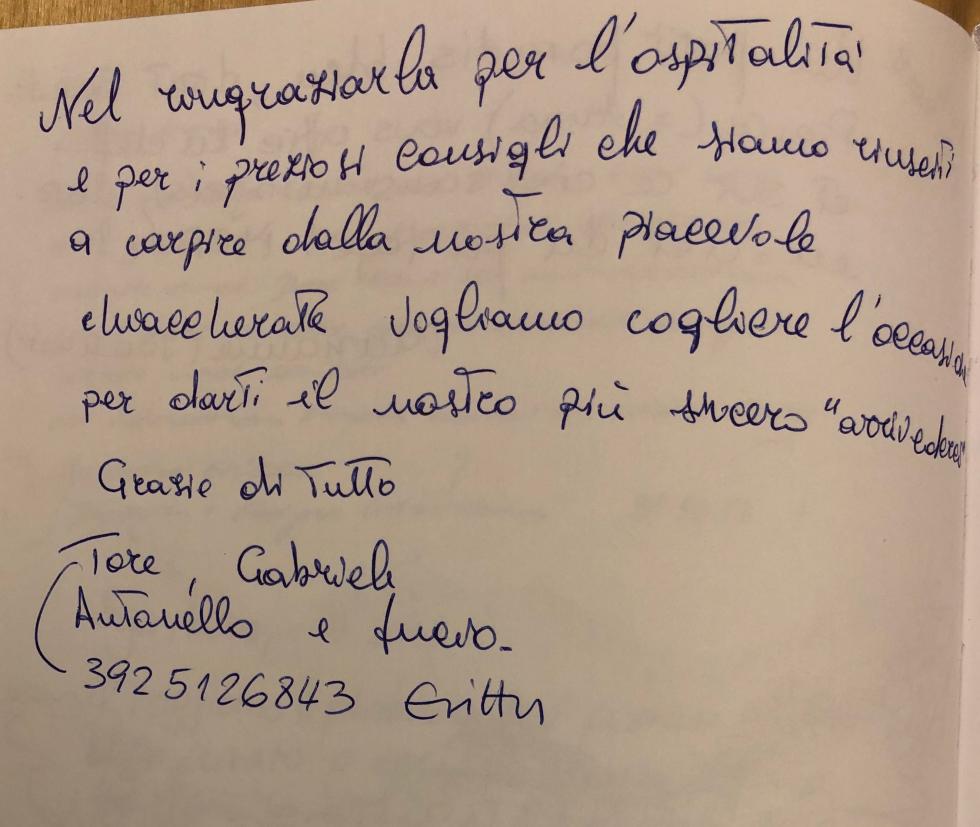 Nel ringraziarla per l'ospitalità
e per i preziosi consigli che siamo riusciti
a carpire dalla nostra piacevole
chiaccherata vogliamo cogliere l'occasion
per darti il nostro più sincero "arrivederci"
Grazie di tutto
Tore, Gabriele
Antonello e
3925126843